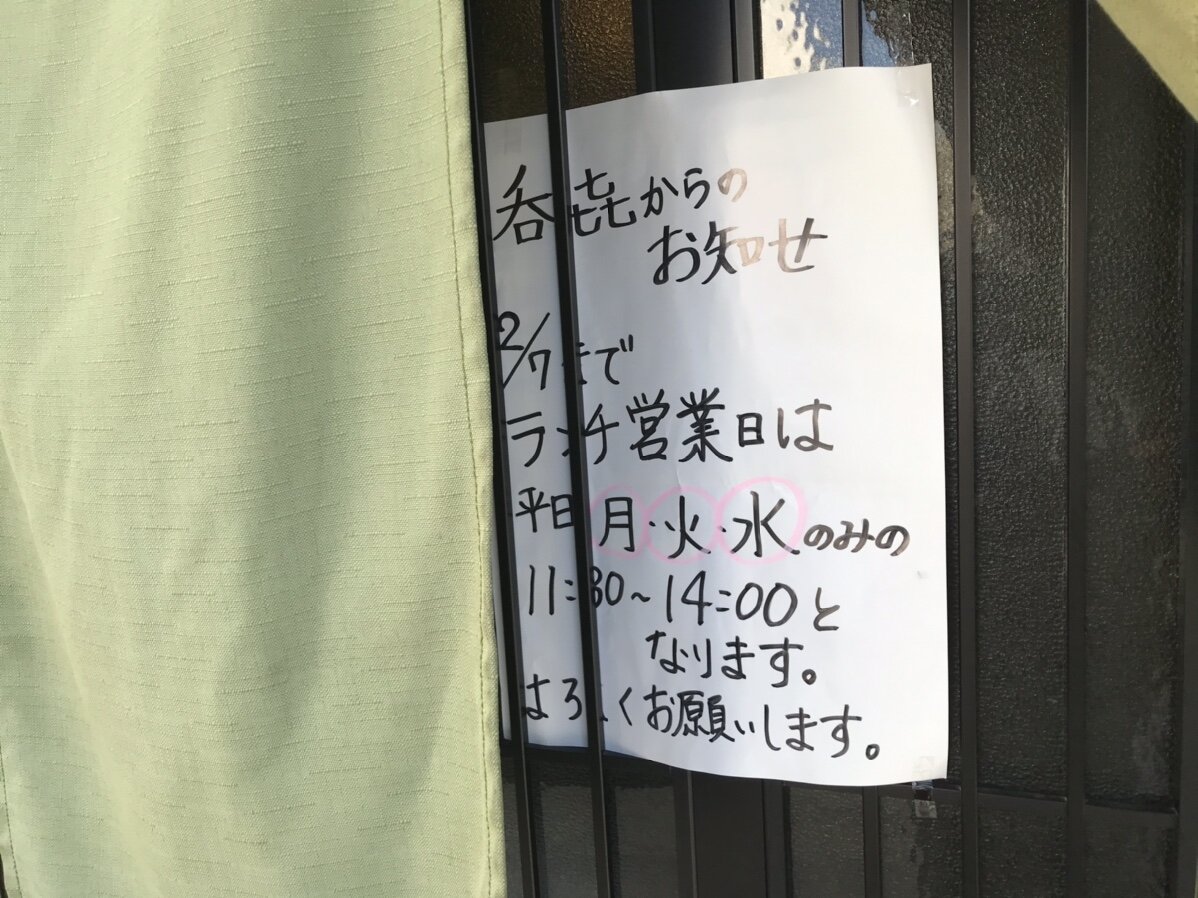 呑㐂からの
お知せ
2/7まで
ランチ営業日は
平日月・火・水のみの
11:30~14:00と
なります。
よろしくお願いします。